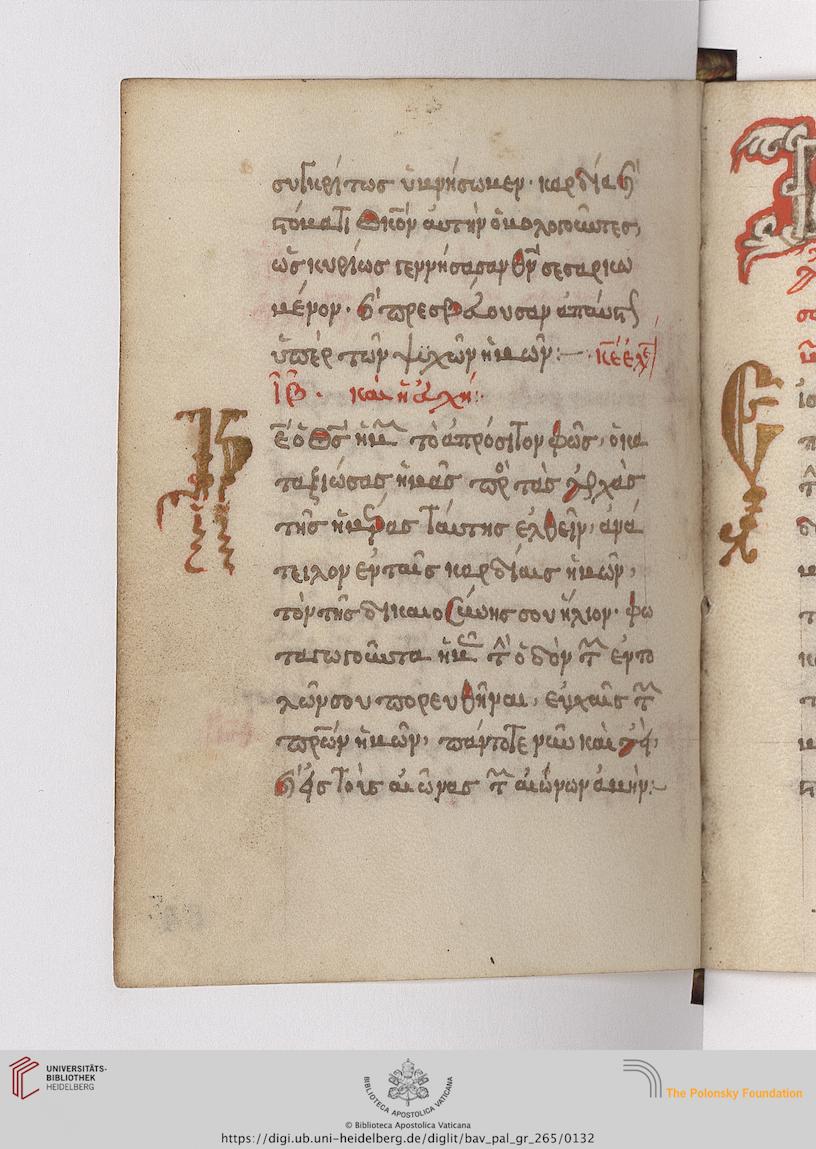 συγκρίτως ὑμνήσωμεν· καρδία καὶ
στόματι Θκον αὐτὴν ὁμολογοῦντες,
ὡς κυρίως γεννήσασαν θν σεσαρκω
μένον· καὶ πρεσβεύουσαν ἀπαύστως
ὑπὲρ τῶν ψυχῶν ἡμῶν:— κε ἐλε
ιβ. καὶ ἡ εὐχή:
Κε ὁ Θς ἡμῶν τὸ ἀπρόσιτον φῶς, ὁ κα
ταξιώσας ἡμᾶς πρὸς τὰς ἀρχὰς
τῆς ἡμέρας ταύτης ἐλθεῖν, ἀνά
τειλον ἐν ταῖς καρδίαις ἡμῶν,
τὸν τῆς δικαιοσύνης σου ἥλιον· φω
ταγωγοῦντα ἡμᾶς τὴν ὁδὸν τῶν ἐντο
λῶν σου πορευθῆναι, εὐχαῖς τῶν
πρων ἡμῶν, πάντοτε νῦν καὶ ἀεὶ,
καὶ εἰς τοὺς αἰῶνας τῶν αἰώνων ἀμήν:—
UNIVERSITÄTS-
BIBLIOTHEK
HEIDELBERG
BIBLIOTECA APOSTOLICA VATICANA
The Polonsky Foundation
© Biblioteca Apostolica Vaticana
https://digi.ub.uni-heidelberg.de/diglit/bav_pal_gr_265/0132